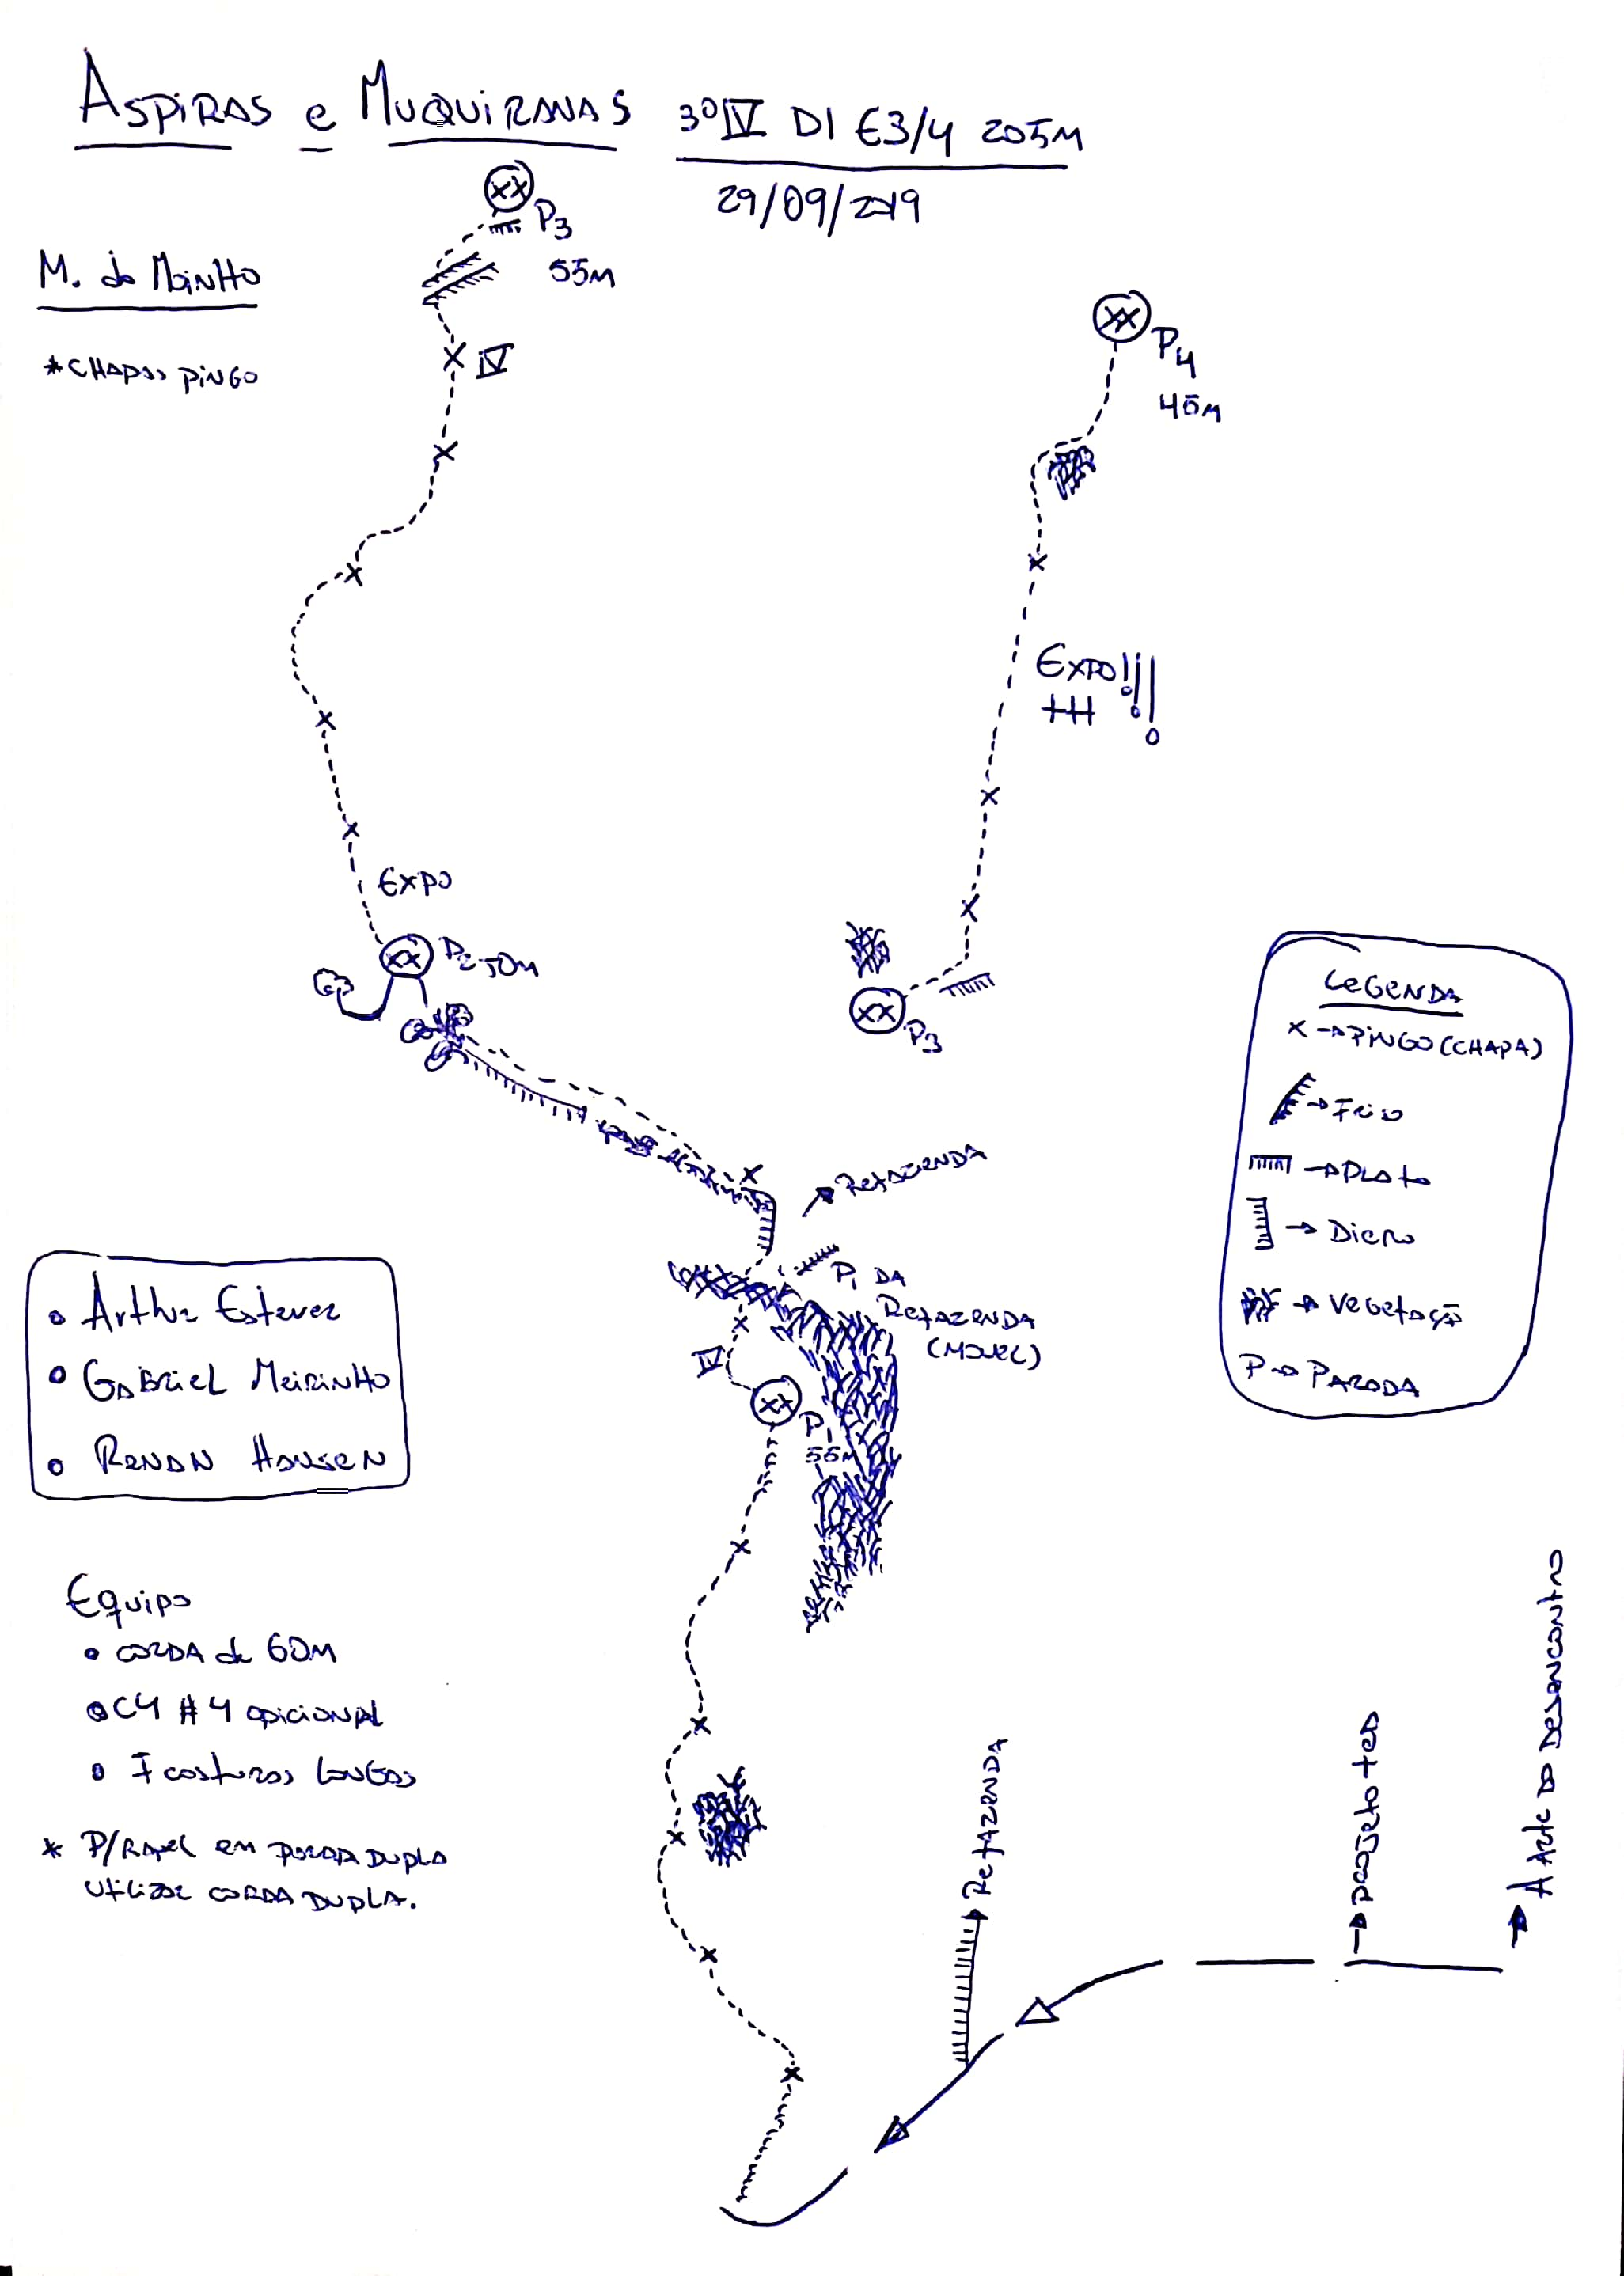 ASPIRAS e MUQUIRANAS 3º IV D1 E3/4 205M
29/09/2019
M. do MoinHo
*CHAPAS PINGO
P3
55M
IV
P4
45M
EXPO!!!
EXPO
P2 50M
P3
LEGENDA
X → PINGO (CHAPA)
→ Friso
→ Plato
→ Diero
→ Vegetação
P → PARADA
REFAZENDA
P1 DA
REFAZENDA
(MOVEL)
IV
P1
55M
• Arthur Estevez
• GABRIEL MeirinHo
• RENAN HANSEN
Equipo
• CORDA de 60M
• C4 #4 opicional
• 7 costuras LONGAS
* P/RAPEL em PARADA DUPLA
utilizar CORDA DUPLA.
→ Refazenda
→ projeto ted
→ A Arte do Desencontro